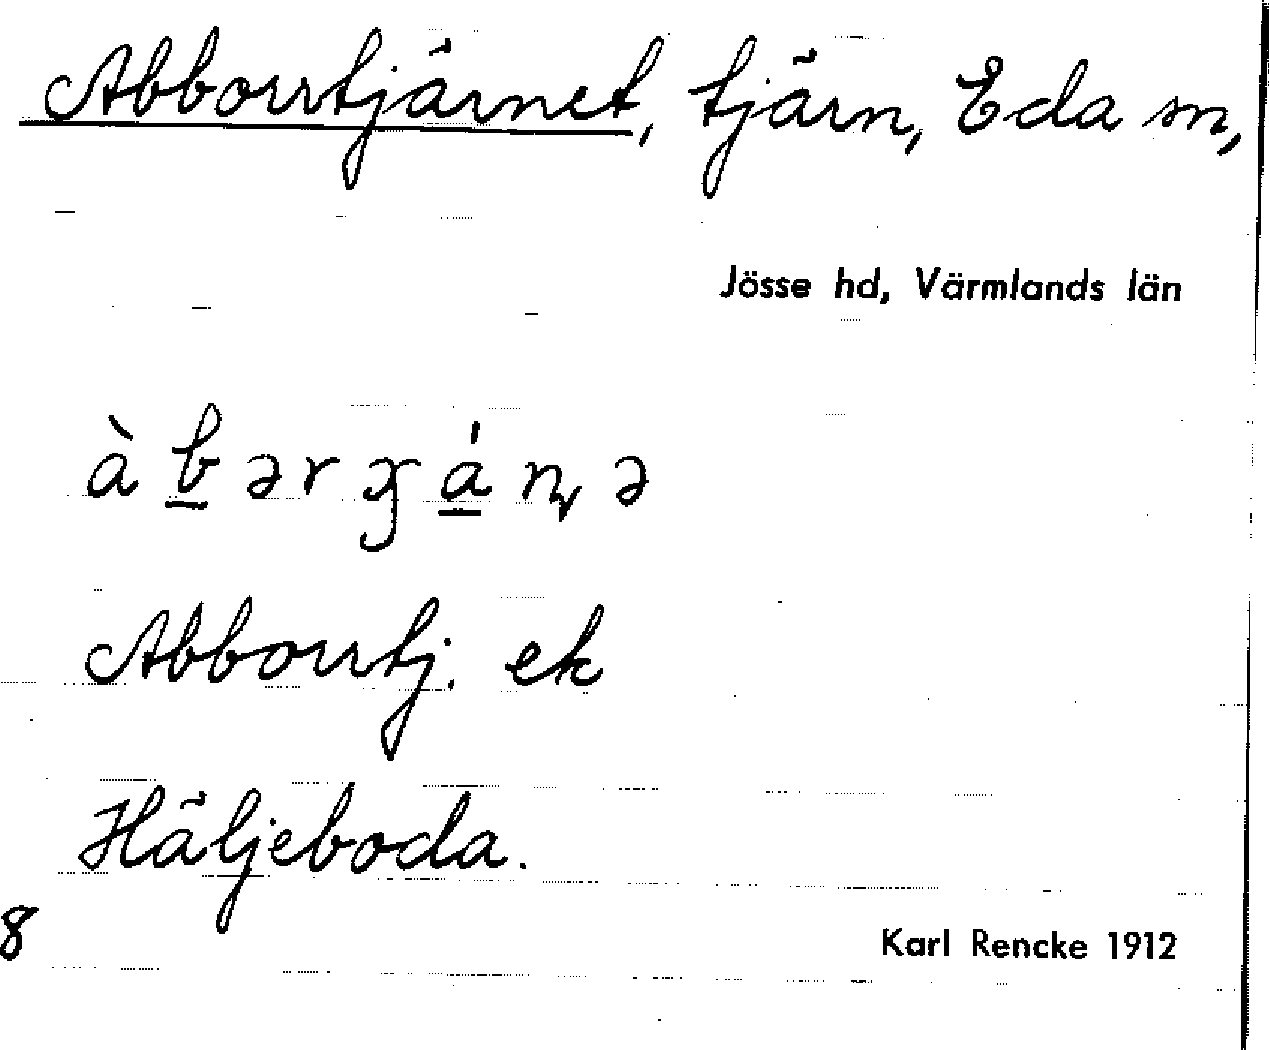 Abborrtjärnet, tjärn, Eda sn,
Jösse hd, Värmlands län
Abborrtj. ek
Häljeboda.
8
Karl Rencke 1912